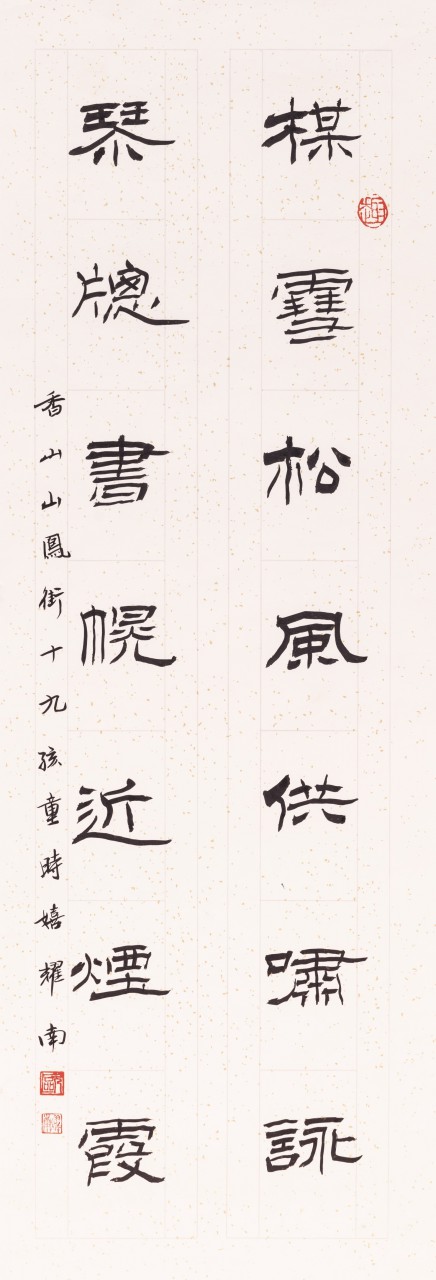 楳雪松風供嘯詠
琹牕書幌近煙霞
香山山鳳街十九孩童時嬉耀南